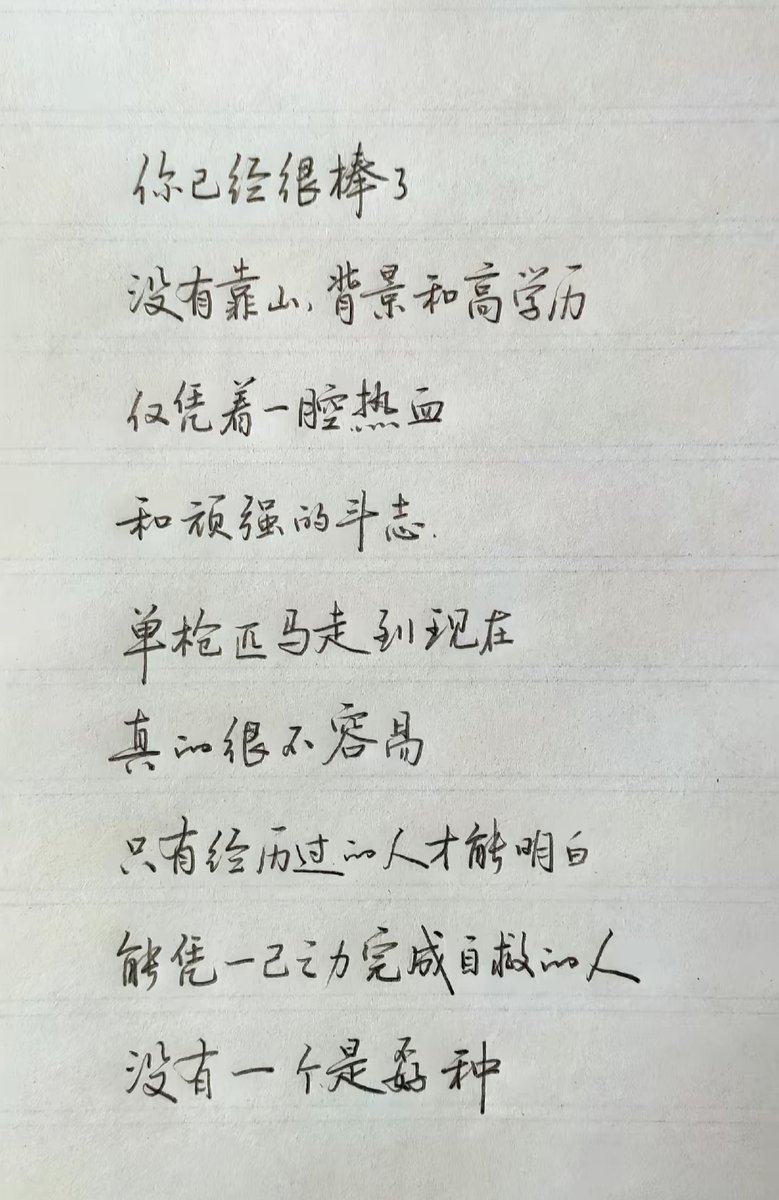 你已经很棒了
没有靠山、背景和高学历
仅凭着一腔热血
和顽强的斗志.
单枪匹马走到现在
真的很不容易
只有经历过的人才能明白
能凭一己之力完成自救的人
没有一个是孬种